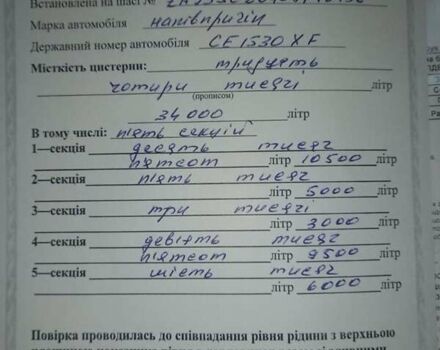 Встановлена на шасі №
Марка автомобіля напівпричіп
Державний номер автомобіля СЕ1530ХF
Місткість цистерни: тридцять
чотири тисячі літр
(прописом)
34000 літр
В тому числі: п'ять секцій
1—секція десять тисяч
п'ятсот літр 10500 літр
2—секція п'ять тисяч
літр 5000 літр
3—секція три тисячі
літр 3000 літр
4—секція девіять тисяч
п'ятсот літр 9500 літр
5—секція шість тисяч
літр 6000 літр
Повірка проводилась до співпадання рівня рідини з верхньою